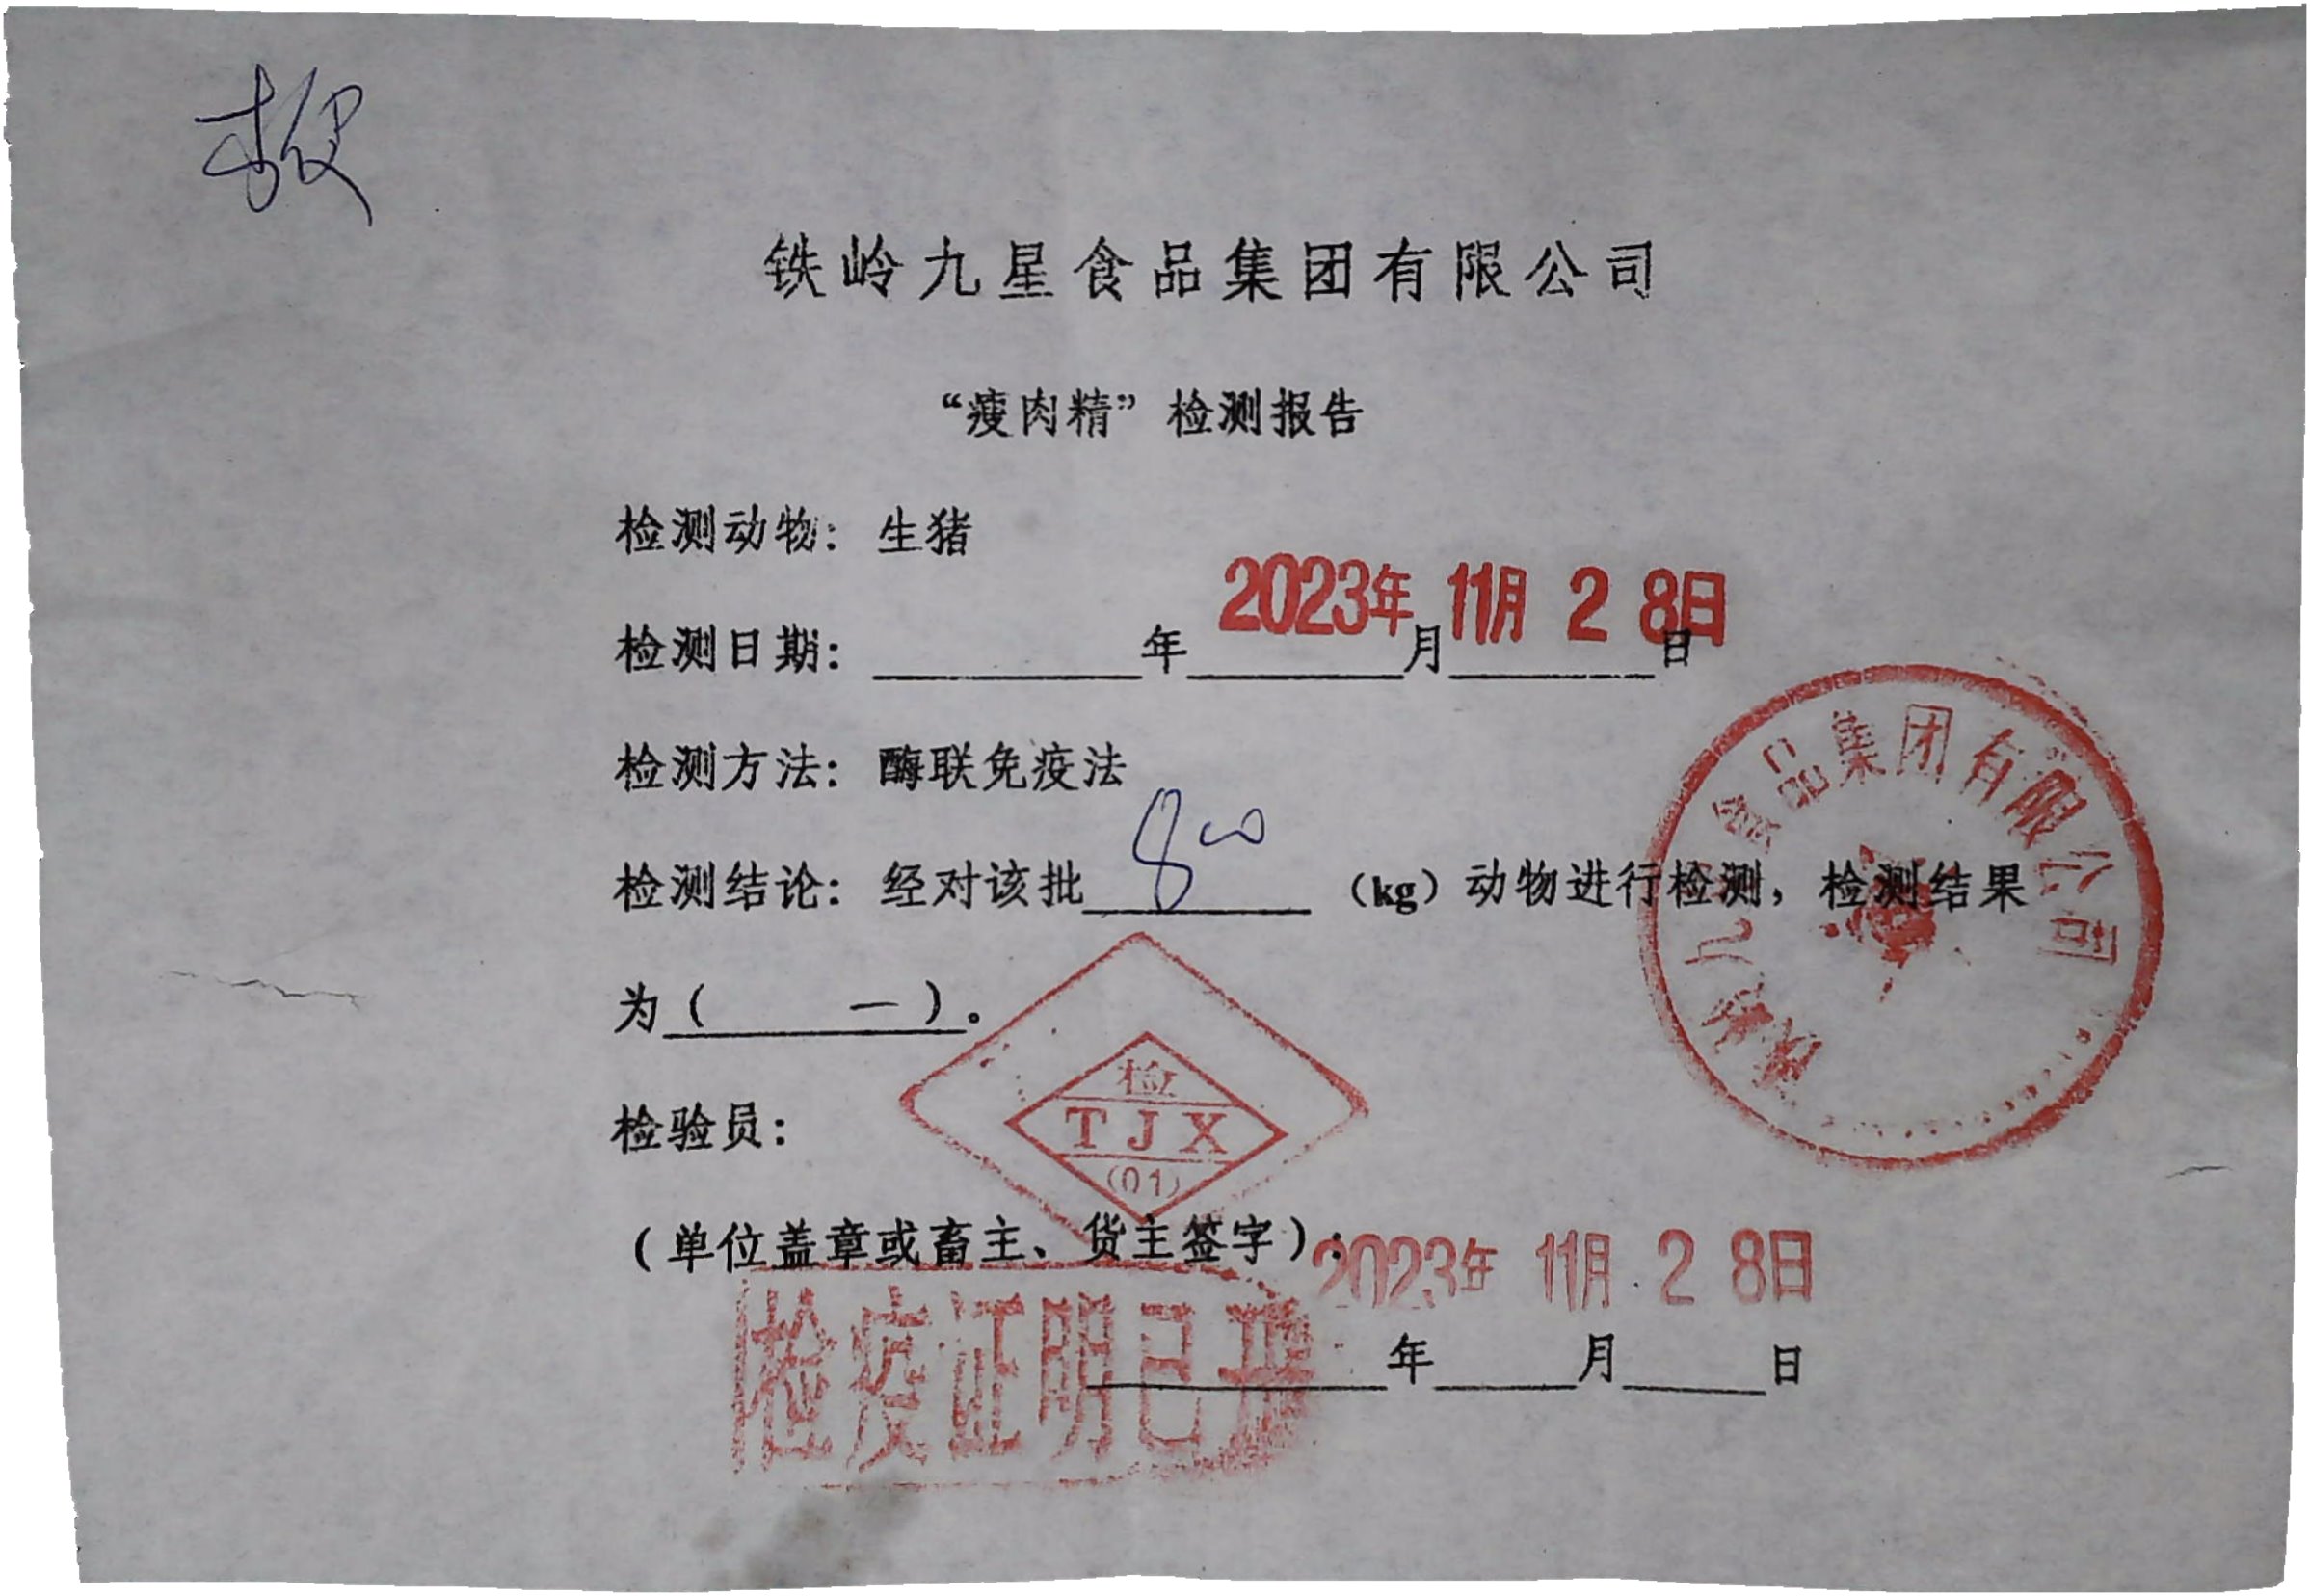 铁岭九星食品集团有限公司
“瘦肉精”检测报告
检测动物：生猪
2023年 11月 2 8日
检测日期：______年______月______日
检测方法：酶联免疫法
检测结论：经对该批 800 （kg）动物进行检测，检测结果
为（ — ）。
铁岭九星食品集团有限公司
检
TJX
(01)
检验员：
（单位盖章或畜主、货主签字）：
2023年 11月 2 8日
______年____月____日
检疫证明已开